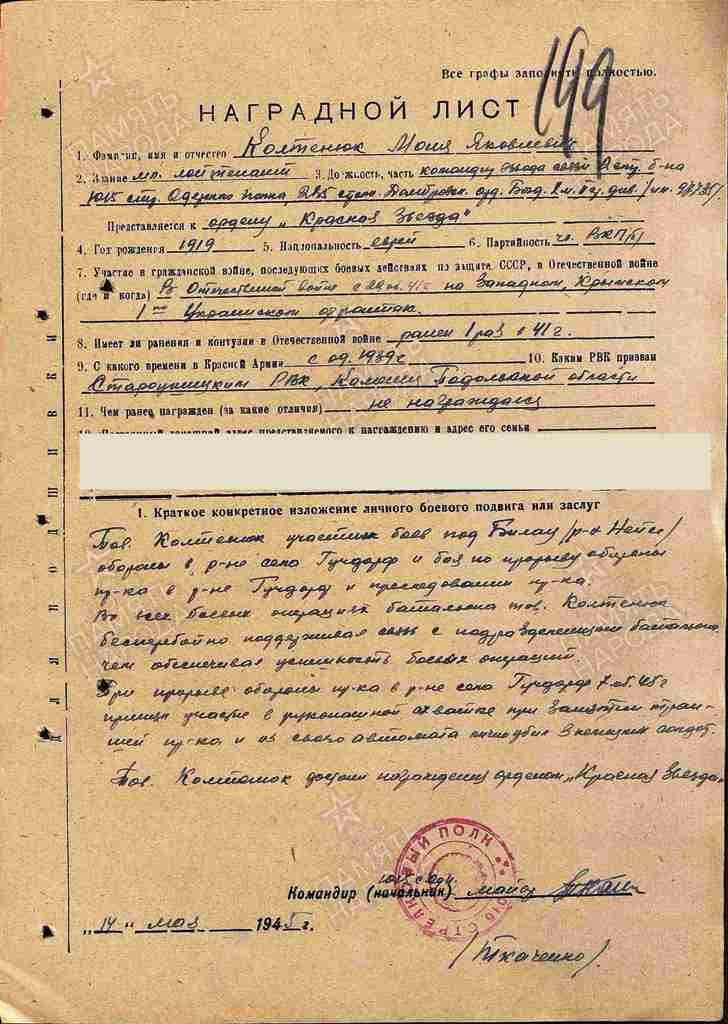 199
Все графы заполнять полностью.
НАГРАДНОЙ ЛИСТ
1. Фамилия, имя и отчество Колтенюк Яковлевич
2. Звание мл. лейтенант 3. Должность, часть командир взвода связи 2 стр. б-на
1015 стр. полка, 285 стр. Домбровск. орд. Богд. Хм. див.
Представляется к ордену „Красная Звезда"
4. Год рождения 1919 5. Национальность еврей 6. Партийность чл. ВКП/б/
7. Участие в гражданской войне, последующих боевых действиях по защите СССР, в Отечественной войне
(где и когда) В Отечественной войне с 41г на Западном, Крымском
1ом Украинском фронтах.
8. Имеет ли ранения и контузии в Отечественной войне ранен 1 раз в 41г.
9. С какого времени в Красной Армии с 1939г 10. Каким РВК призван
Староушицким РВК, Каменец Подольской области
11. Чем ранее награжден (за какие отличия) не награждался
12. Постоянный домашний адрес представляемого к награждению и адрес его семьи
1. Краткое конкретное изложение личного боевого подвига или заслуг
Тов. Колтенюк участник боев под /р-н Нейсе/
обороны в р-не села Гучдорф и боя по прорыву обороны
пр-ка в р-не Гучдорф и преследовании пр-ка.
Во всех боевых операциях батальона тов. Колтенюк
бесперебойно поддерживал связь с подразделениями батальона
чем обеспечивал успешность боевых операций.
При прорыве обороны пр-ка в р-не села Гучдорф 7.05.45г
принял участие в рукопашной схватке при занятии тран-
шей пр-ка и из своего автомата лично убил 3 немецких солдат.
Тов. Колтенюк достоин награждения орденом „Красная Звезда"
1015 с.
Командир (начальник) майор
СТРЕЛКОВЫЙ ПОЛК
„14" мая 1945г.
/Ткаченко/.
ДЛЯ ПОДШИВКИ
ПАМЯТЬ НАРОДА